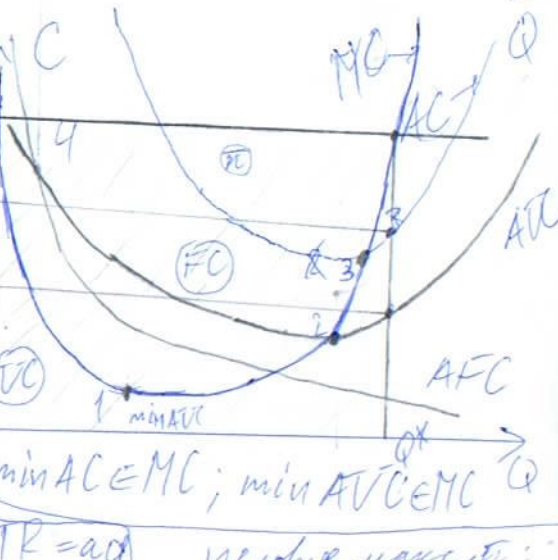 C
MC
Q
AC
4
π
3
AVC
FC
2 3
2
AFC
VC
1
minAVC
Q*
Q
minAC∈MC; minAVC∈MC